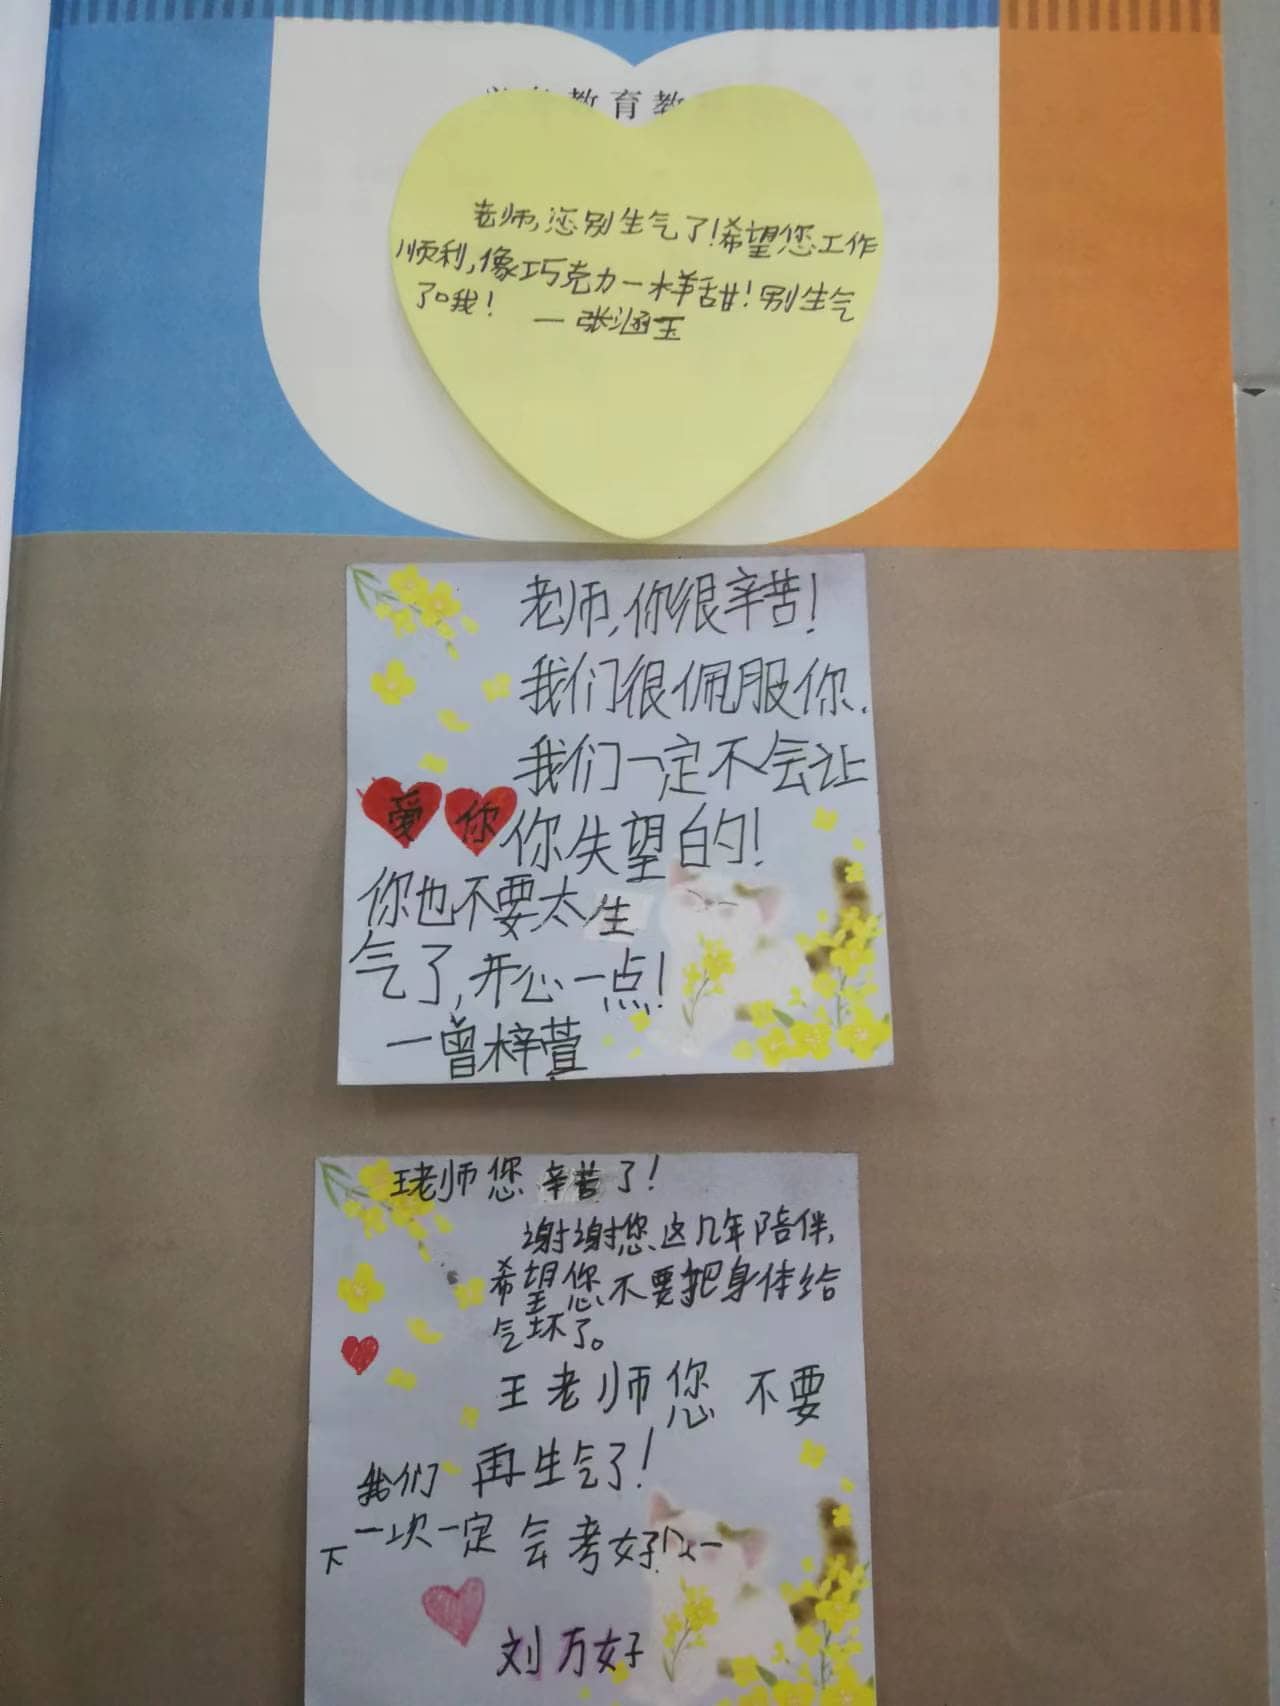 教育教
老师,您别生气了!希望您工作
顺利,像巧克力一样甜!别生气
了哦!
—张涵玉
老师,你很辛苦!
我们很佩服你.
我们一定不会让
爱你
你失望的!
你也不要太生
气了,开心一点!
—曾梓萱
王老师您辛苦了!
谢谢您这几年陪伴,
希望您不要把身体给
气坏了。
王老师您不要
再生气了!
我们
下一次一定会考好
刘万好